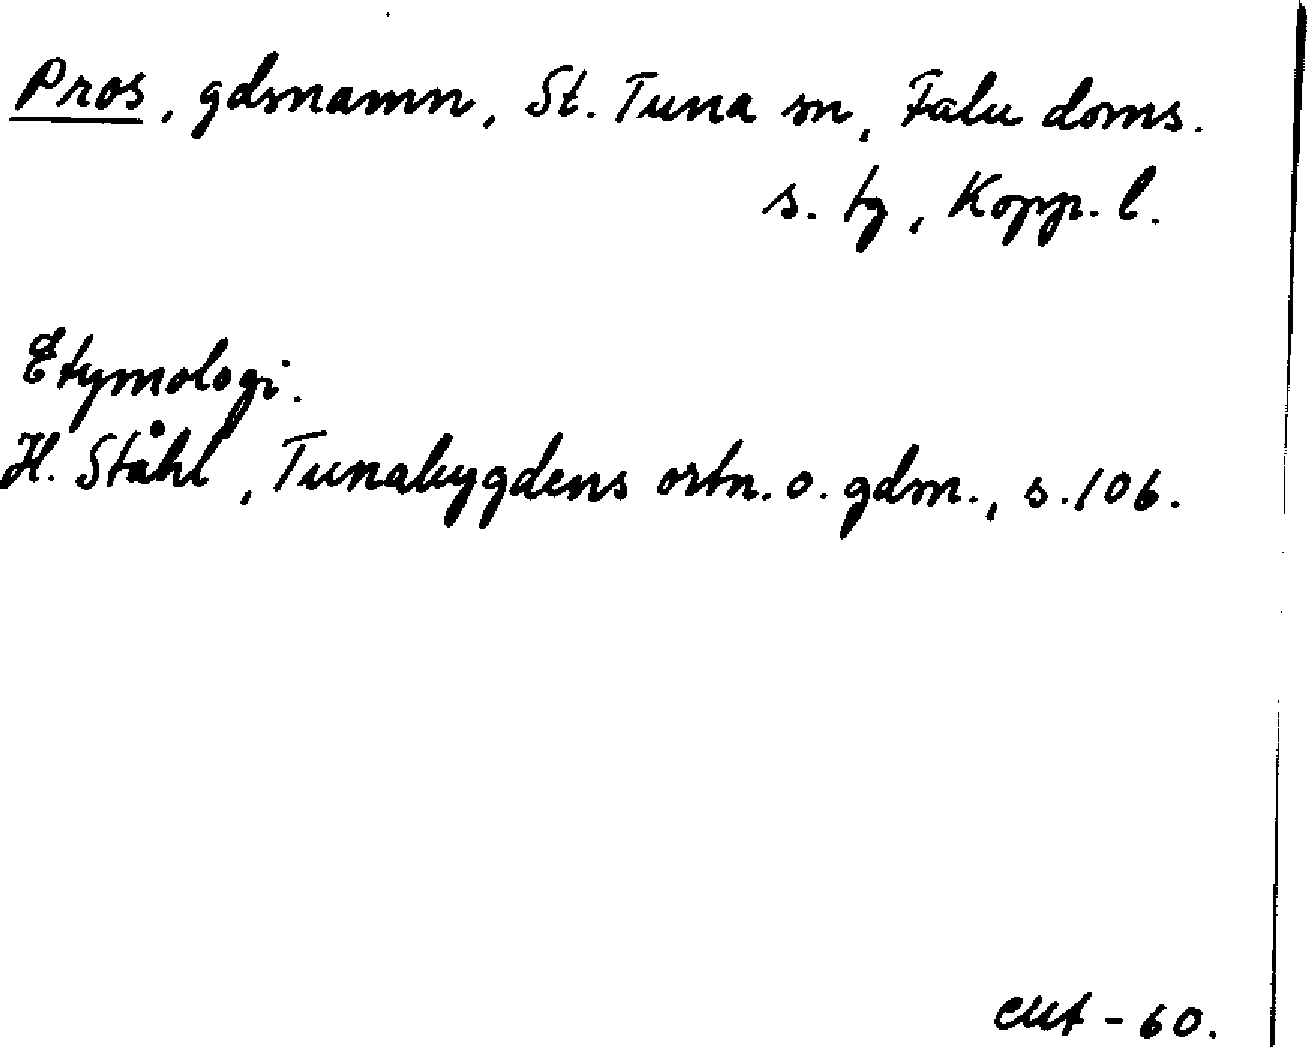 Pros, gdsnamn, St. Tuna sn, Falu doms.
s. tg, Kopp. l.
Etymologi.
H. Ståhl, Tunabygdens ortn. o. gdsn., s. 106.
-60.